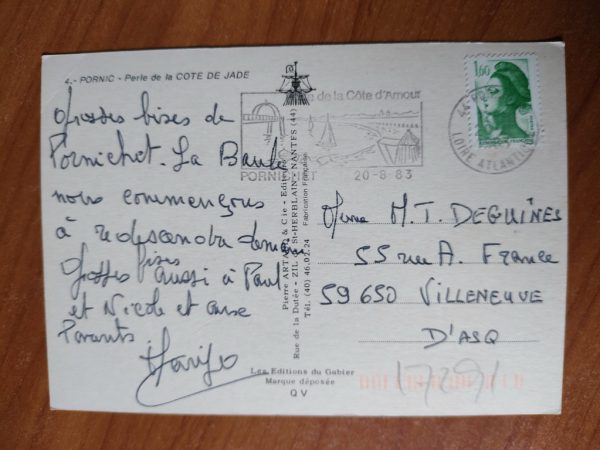 4.- PORNIC - Perle de la COTE DE JADE
Grosses bises de
Pornichet. La Baule
nous commençons
à redescendre demain
Grosses bises aussi à Paul
et Nicole et aux
Parents
de la Côte d'Amour
PORNICHET 20-8-83
1,60
44
LOIRE ATLANTIQUE
Pierre ARTAUD & Cie - Editeurs
Rue de la Dutée - ZIL - ST-HERBLAIN - NANTES (44)
Tél. (40) 46.02.24 Fabrication Française
Mme M.T. DEGUINES
55 rue A. France
59650 VILLENEUVE
D'ASQ
Les Editions du Gabier
Marque déposée
QV